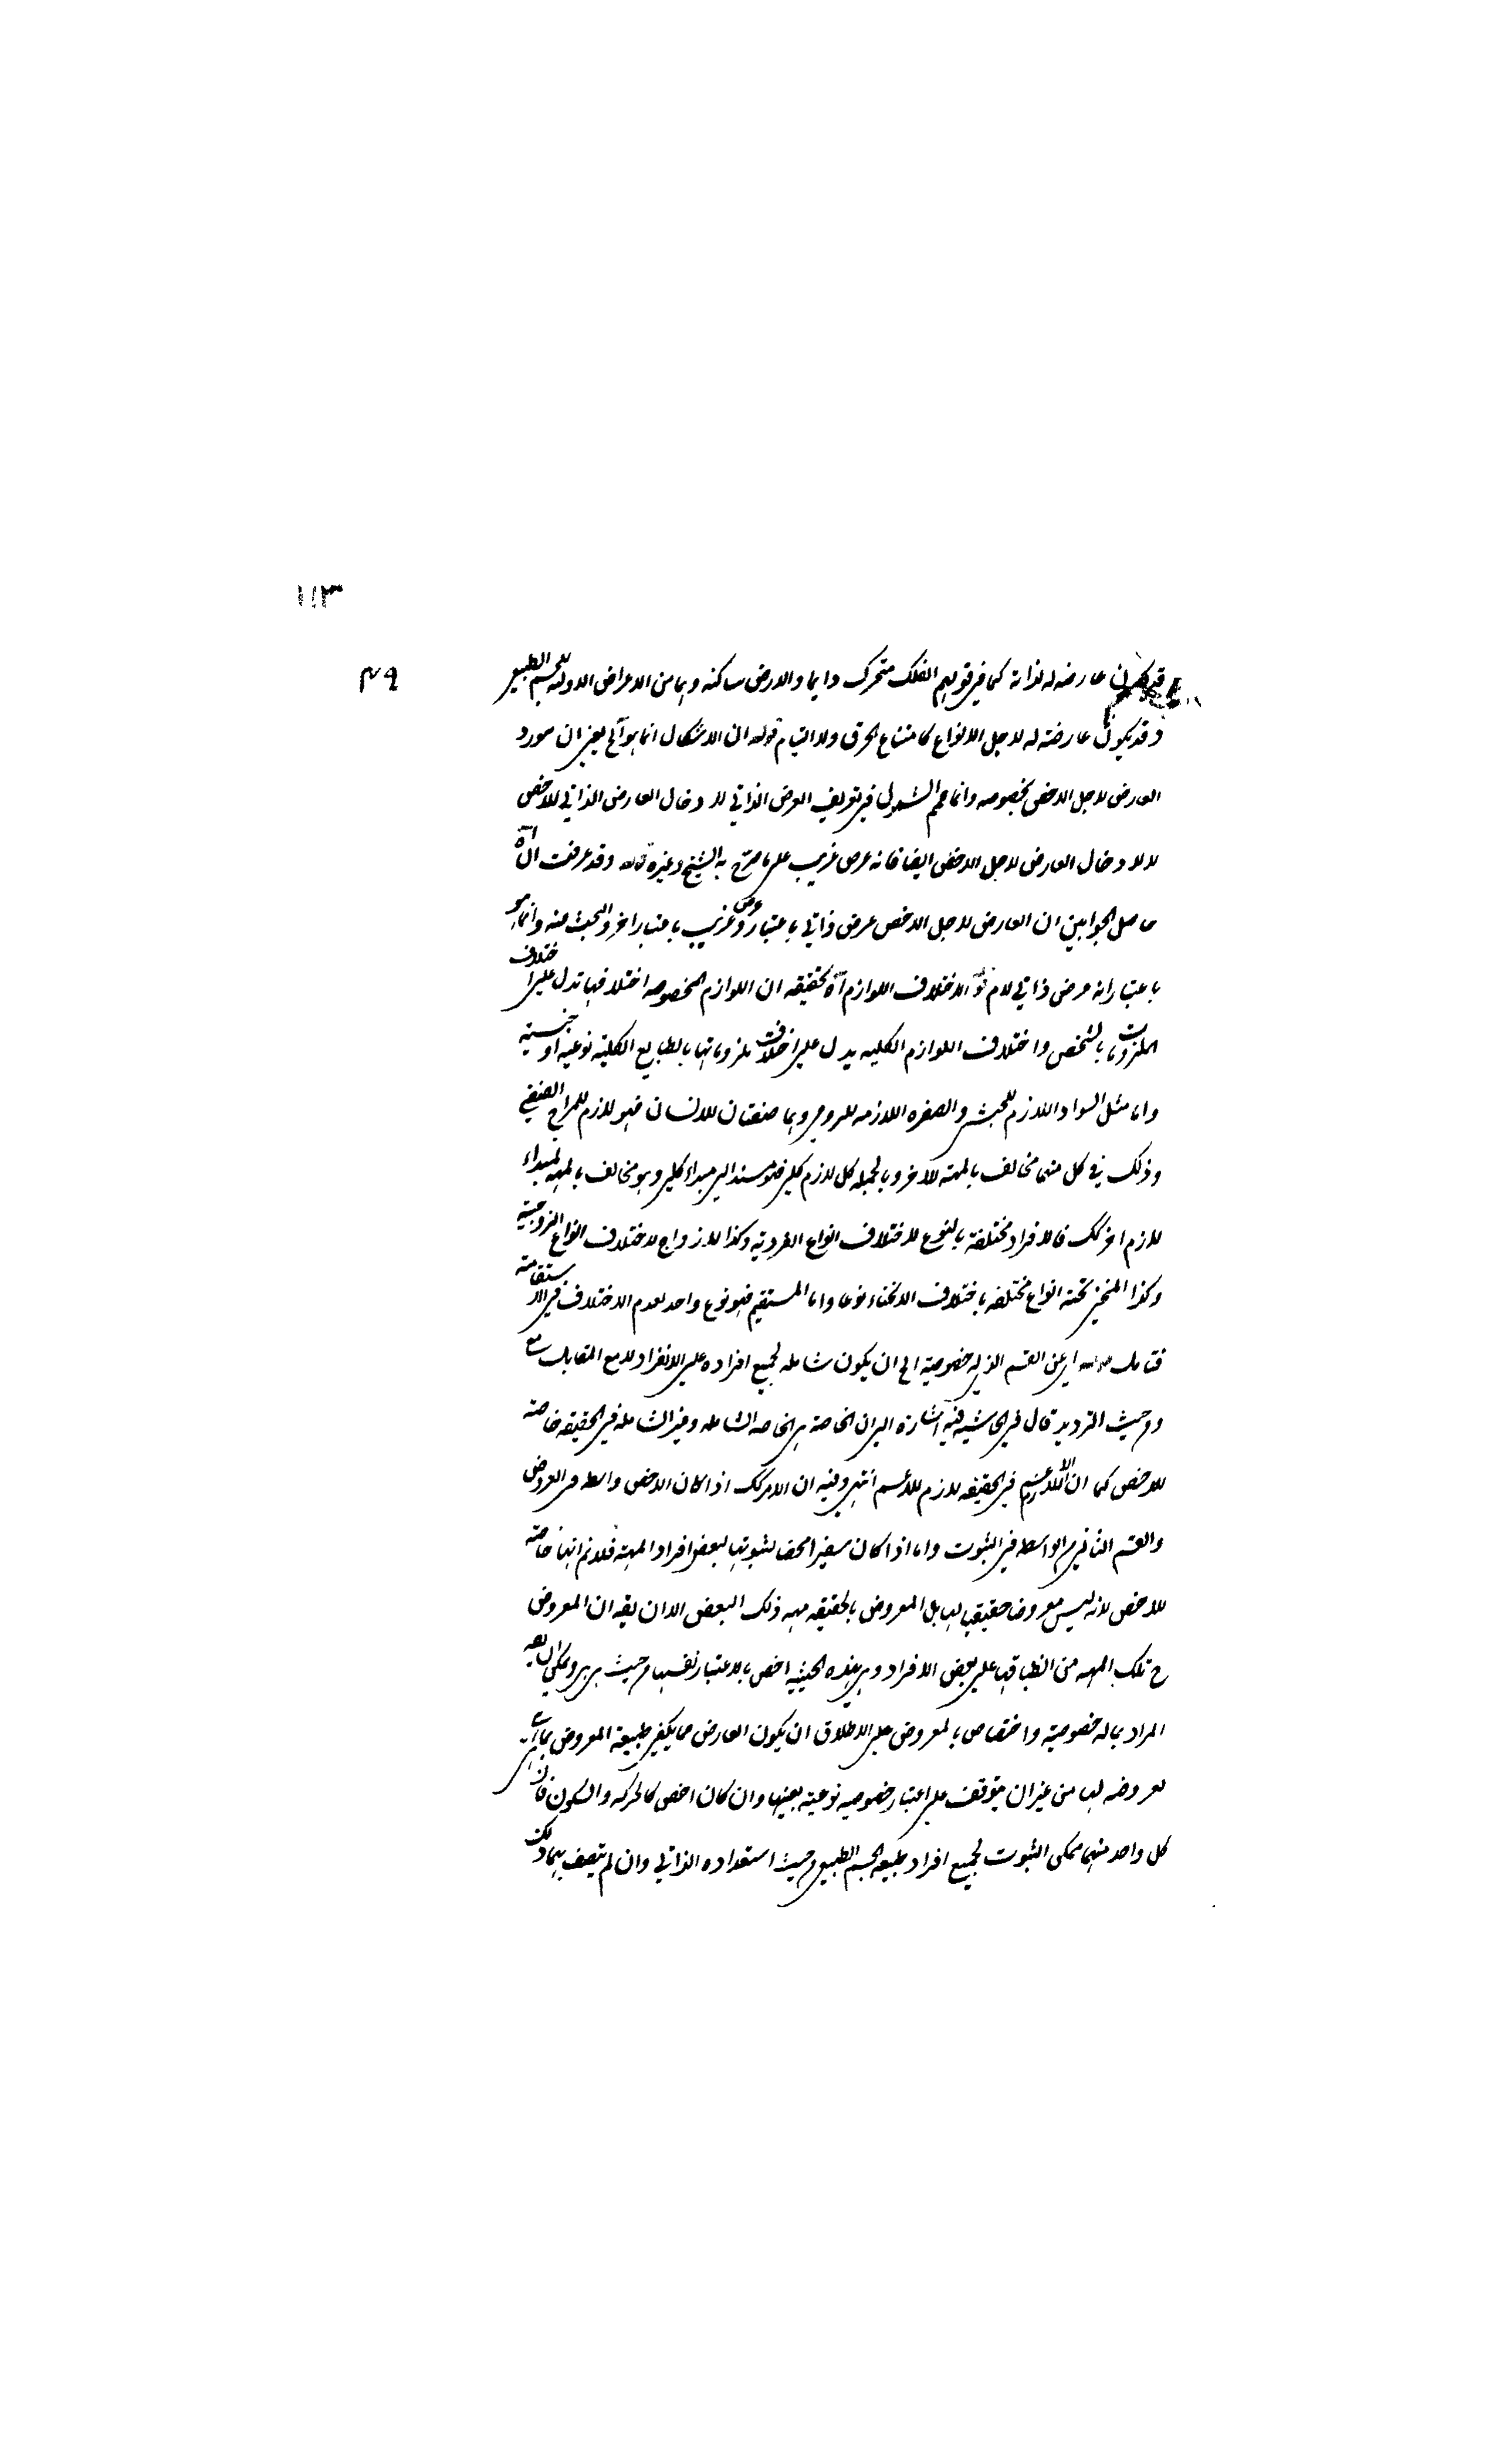 ١١٣
٤٩
قد يكون عارضه له لذاته كما في قولهم الفلك متحرك دايما والارض ساكنه وهما من الاعراض الاوليه للجسم الطبيعي
وقد يكون عارضته له لاجل الانواع كامتناع الخرق والالتيام قوله ان الاشكال انما هو آلخ يعني ان مورد
العارض لاجل الاخص بخصوصه وانما عمم الشمول في تعريف العرض الذاتي لا دخال العارض الذاتي للاخص
لا لادخال العارض لاجل الاخص ايضا فانه عرض غريب على ما صرح به الشيخ وغيره قوله وقد عرفت ان آه
حاصل الجوابين ان العارض لاجل الاخص عرض ذاتي باعتبار وعرض غريب باعتبار اخر والبحث عنه وانما هو
باعتبار انه عرض ذاتي الاختلاف اللوازم آه تحقيقه ان اللوازم المخصوصه اختلافها تدل على اختلاف
الملزومات بالشخص واختلاف اللوازم الكليه يدل على اختلاف ملزوماتها بالطبايع الكليه نوعيه او جنسيه
واما مثل السواد اللازم للحبشي والصفره اللازمه للرومي وهما صنفان للانسان فهو لازم للمزاج الصنفي
وذلك في كل منهما مخالف بالمهيه للاخر وبالجمله كل لازم كلي فهو مستند الى مبداء كلي وهو مخالف بالمهيه لمبداء
لازم اخر كك فالافراد مختلفه بالنوع لاختلاف انواع الفرديه وكذا الازواج لاختلاف انواع الزوجيه
وكذا المنحني تحته انواع مختلفه باختلاف الانحناء نوعا واما المستقيم فهو نوع واحد لعدم الاختلاف في الاستقامته
فتامل قوله اي عن القسم الذي له خصوصيته الى ان يكون شامله لجميع افراده على الانفراد لا مع المقابل
ومن حيث الترديد قال في الحاشيه فيه اشاره الى ان الخاصة هي الخاصه الشامله وغير الشامله في الحقيقه خاصته
للاخص كما ان اللازم في الحقيقه لازم للاعم انتهى وفيه ان الامر كك اذا كان الاخص واسطه في العروض
والقسم الثاني من الواسطه في الثبوت واما اذا كان سفيرا محضا لثبوتها لبعض افراد المهيه فلا نم انها خاصته
للاخص لانه ليس معروضا حقيقيا لها بل المعروض بالحقيقه مهيه ذلك البعض الا ان يقه ان المعروض
ح تلك المهيه من انطباقها على بعض الافراد وهي بهذه الحيثيه اخص بالاعتبار نفسها من حيث هي هي ويمكن ان يقه
المراد بماله خصوصيته واختصاص بالمعروض على الاطلاق ان يكون العارض مما يكفي طبيعة المعروض
لعروضه لها من غير ان يتوقف على اعتبار خصوصيه نوعيته بعينها وان كان اخص كالحركه والسكون فان
كل واحد منهما ممكن الثبوت لجميع افراد طبيعه الجسم الطبيعي من حيث استعداده الذاتي وان لم يتصف بهما ذلك